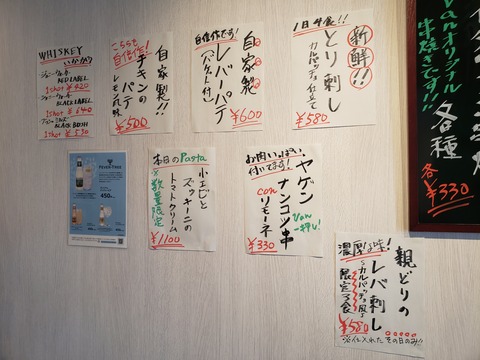 WHISKEY
いかが?
RED LABEL
1shot ¥420
BLACK LABEL
1shot ¥640
BLACK BUSH
1shot ¥530
こちらも自信作!
自家製!!
チキンのパテ
レモン風味
¥500
自信作です!
自家製
レバーパテ
(バゲット付)
¥600
1日4食!!
新鮮!!
とり刺し
カルパッチョ仕立て
¥580
Vanオリジナル
串焼きです!!
各種
各¥330
FEVER-TREE
450
本日のPasta
小エビと
ズッキーニの
トマトクリーム
※数量限定
¥1100
お肉いっぱい
付いてます!
ヤゲン
ナンコツ串
con リモーネ
Van一押し!
¥330
濃厚な味!
親どりの
レバ刺し
~カルパッチョ風~
限定3食
¥580
※仕入れたその日のみ!!